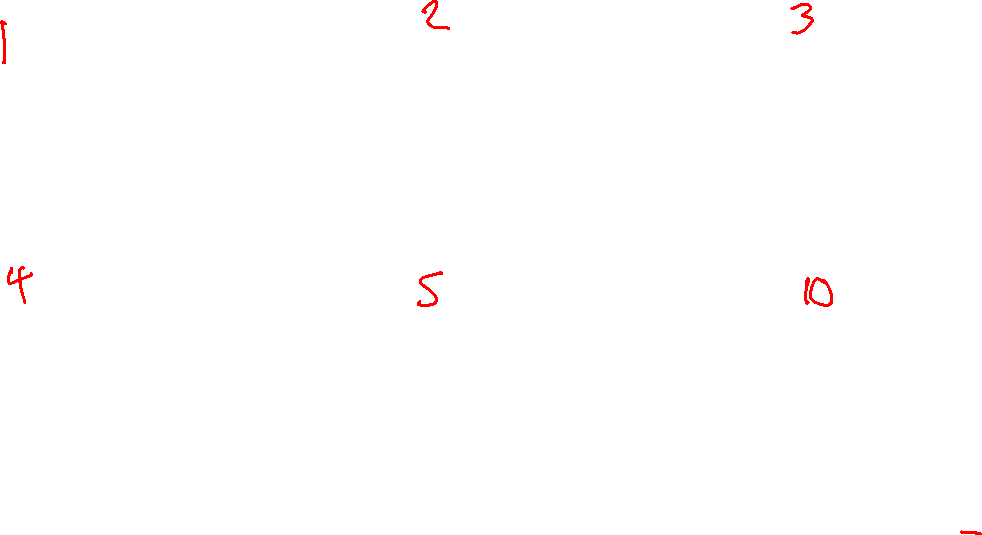 1 2 3
4 5 10
-